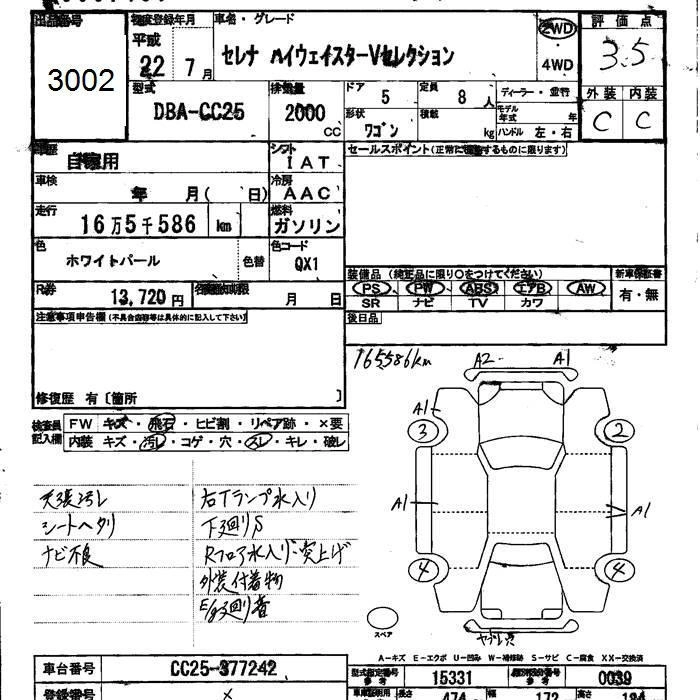 出品番号 初度登録年月 車名・グレード 2WD 評価点
3002
平成 22 7月 セレナ ハイウェイスターVセレクション 4WD 3.5
型式 排気量 ドア 定員 ディーラー・並行 外装 内装
DBA-CC25 2000 CC 5 8人 C C
形状 積載 モデル年式 年
ワゴン kg ハンドル 左・右
車歴 自家用 シフト IAT セールスポイント(正常に機能するものに限ります)
車検 年 月( 日) 冷房 AAC
走行 16万5千586 km 燃料 ガソリン
色 ホワイトパール 色替 色コード QX1
装備品(純正品に限り○をつけてください) 新車保証書
R券 13,720円 月 日 PS PW ABS エアB AW 有・無
SR ナビ TV カワ
注意事項申告欄(不具合箇所等は具体的に記入して下さい) 後日品
165586km A2 A1
修復歴 有〔箇所 〕
検査員記入欄 FW キズ・飛石・ヒビ割・リペア跡・×要
内装 キズ・汚レ・コゲ・穴・スレ・キレ・破レ
A1
3 2
天張汚レ 右Tランプ水入り
シートヘタリ 下廻りS
A1 A1
ナビ不良 Rフロア水入り・突上げ
4 4
外装付着物
E/g廻り音
スペア ヤブレ穴
A-キズ E-エクボ U-凹み W-補修跡 S-サビ C-腐食 XX-交換済
車台番号 CC25-377242 型式指定番号 参考 15331 類別区分番号 参考 0039
登録番号 × 長さ 474 幅 172 高さ 184